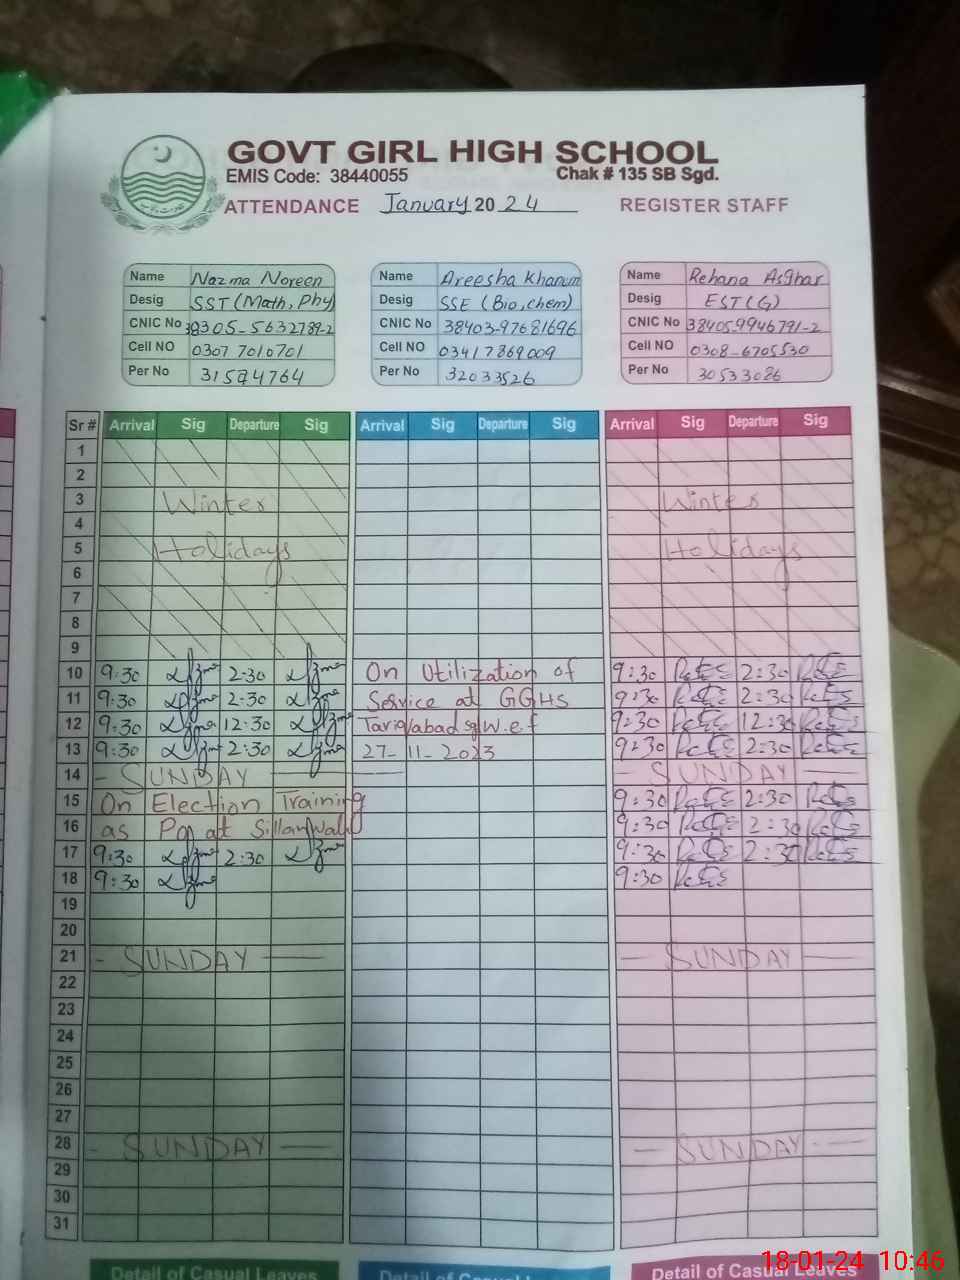 GOVT GIRL HIGH SCHOOL
EMIS Code: 38440055 Chak # 135 SB Sgd.
ATTENDANCE January 20 24 REGISTER STAFF
Name Nazma Noreen
Desig SST (Math, Phy)
CNIC No 38305-5632789-2
Cell NO 0307 7010701
Per No 31584764
Name Areesha Khanum
Desig SSE (Bio, chem)
CNIC No 38403-97681696
Cell NO 03417869009
Per No 32033526
Name Rehana Asghar
Desig EST (G)
CNIC No 38405-9946791-2
Cell NO 0308-6705530
Per No 30533086
Sr # Arrival Sig Departure Sig Arrival Sig Departure Sig Arrival Sig Departure Sig
1
2
3 Winter Winter
4
5 Holidays Holidays
6
7
8
9
10 9:30 2:30 On Utilization of 9:30 2:30
11 9:30 2:30 Service at GGHS 9:30 2:30
12 9:30 12:30 Tariqabad sg w.e.f 9:30 12:30
13 9:30 2:30 27-11-2023 9:30 2:30
14 - SUNDAY - SUNDAY
15 On Election Training 9:30 2:30
16 as at Sillanwali 9:30 2:30
17 9:30 2:30 9:30 2:30
18 9:30 9:30
19
20
21 - SUNDAY - SUNDAY
22
23
24
25
26
27
28 - SUNDAY - SUNDAY
29
30
31
Detail of Casual Leaves Detail of Casual Leaves
18-01-24 10:46